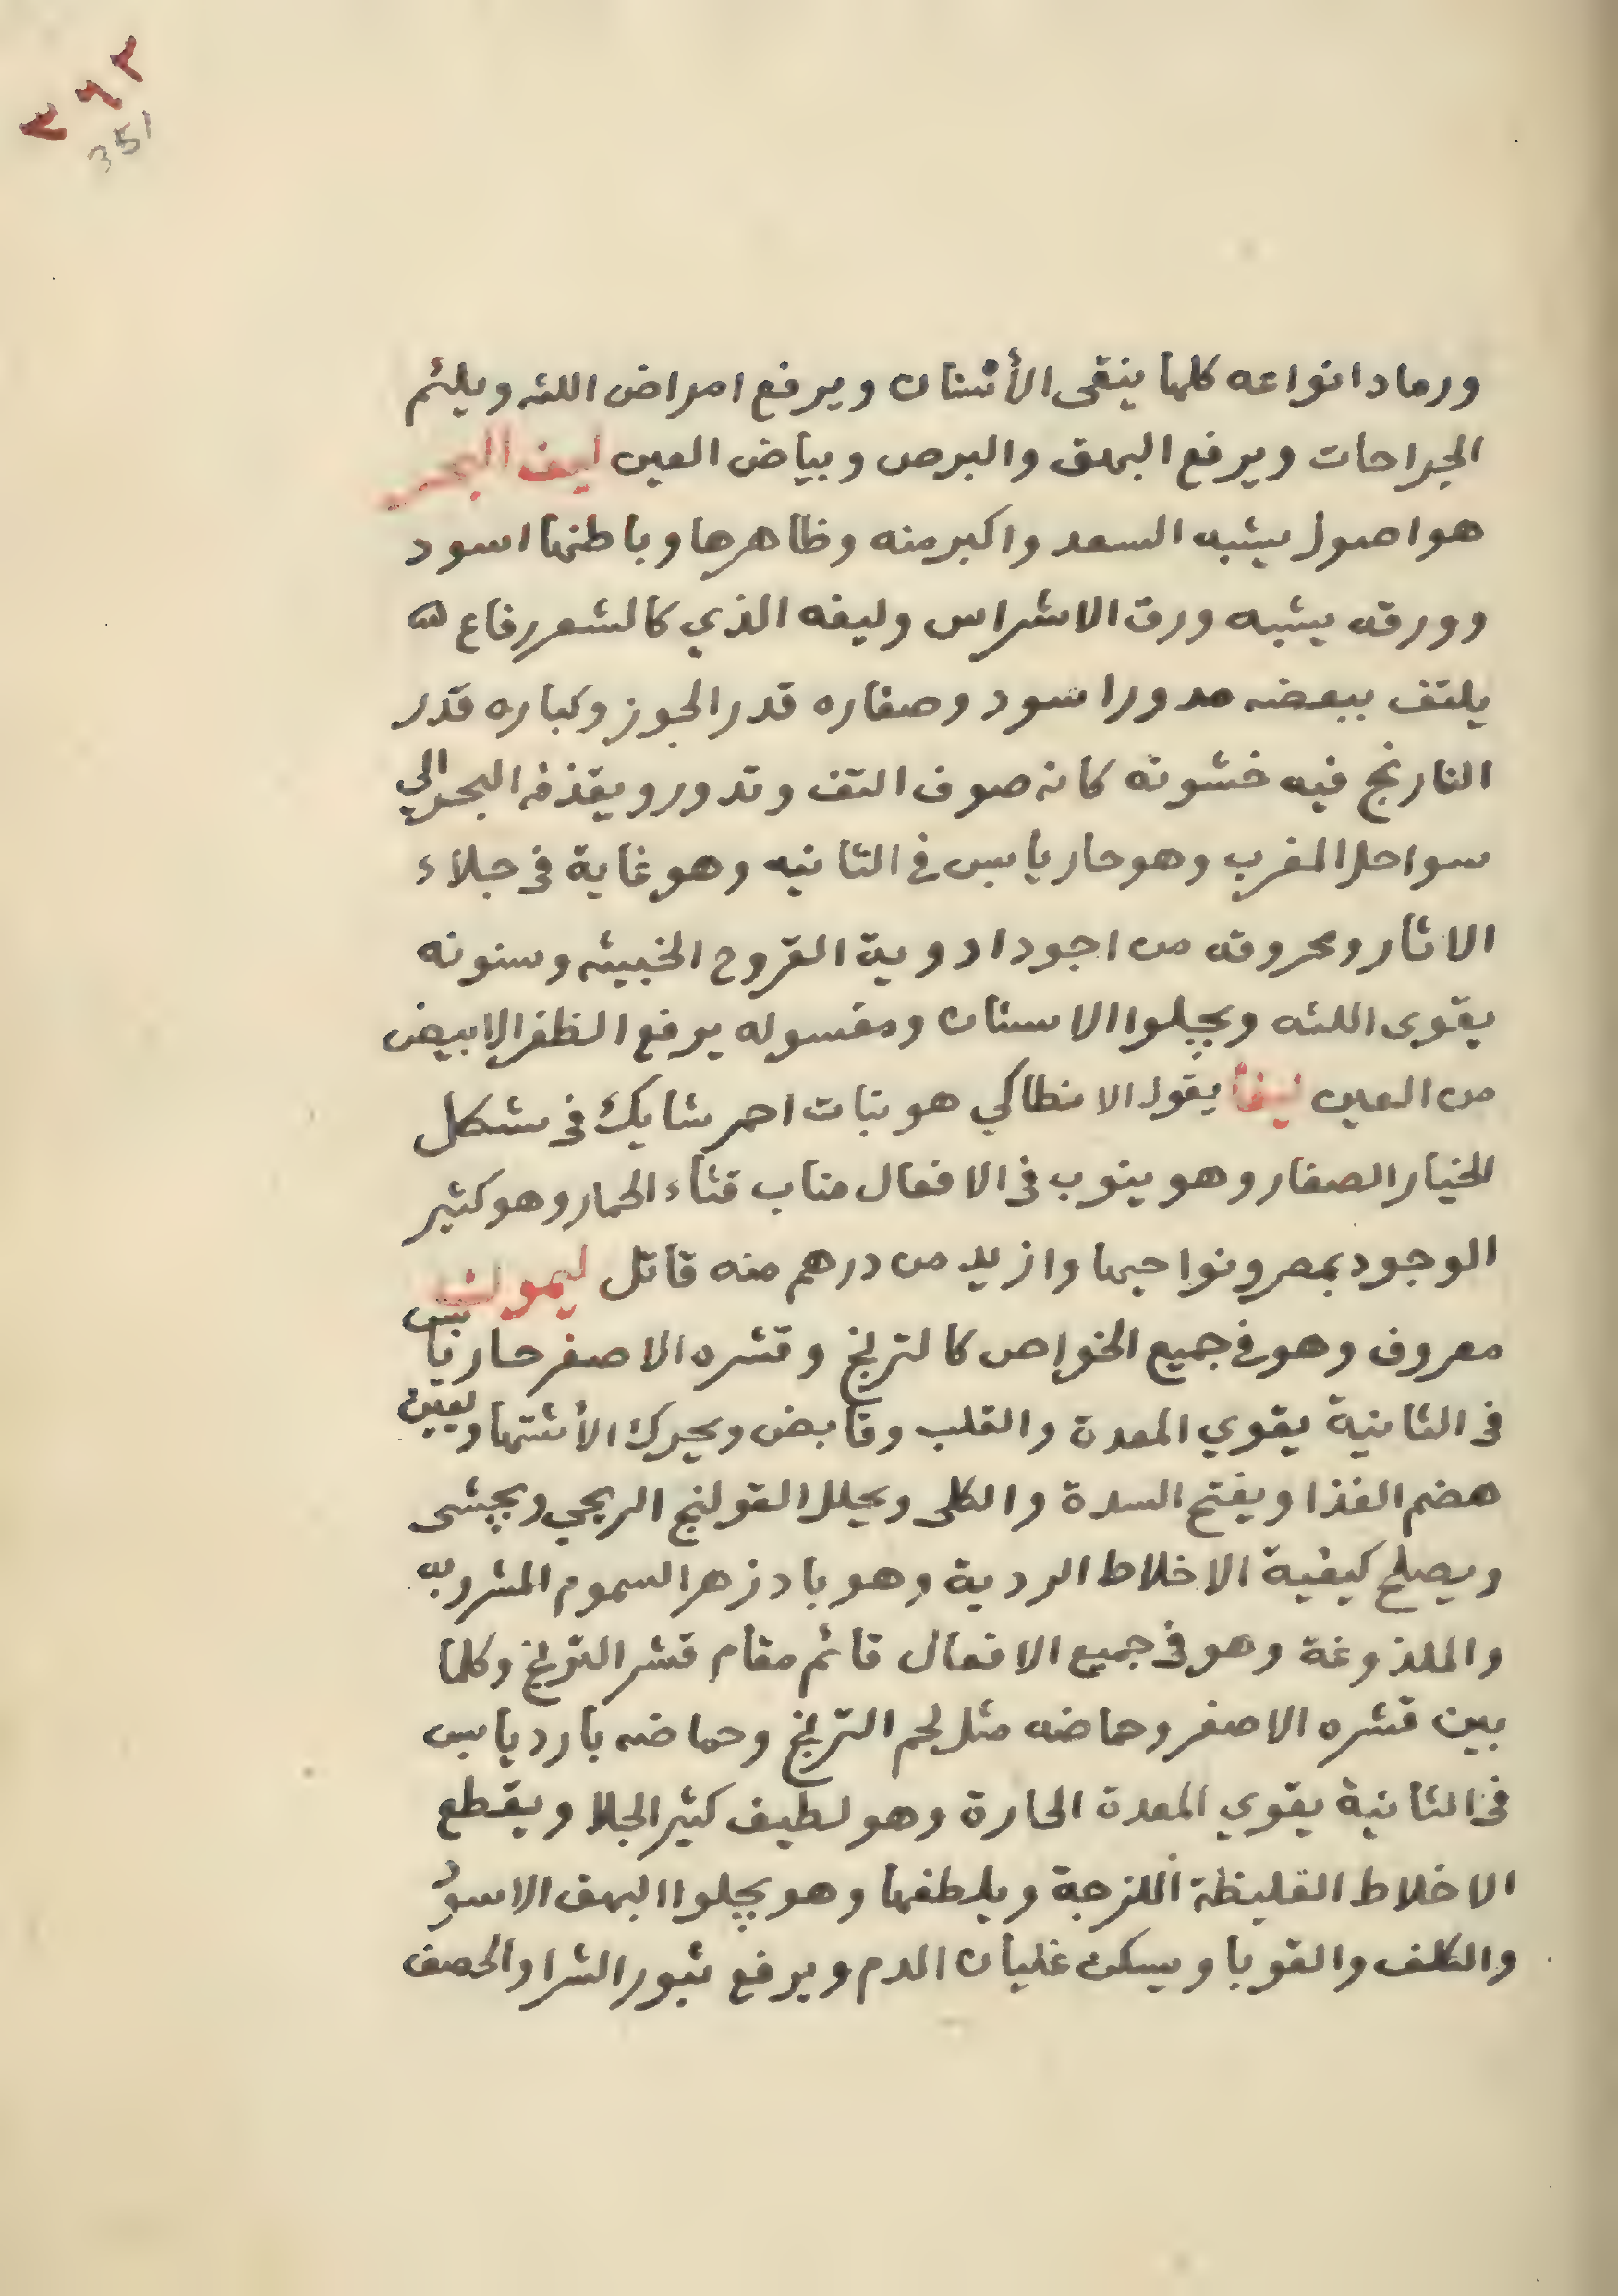 ٣٦٢
351
ورماد انواعه كلها ينقى الأسنان ويرفع امراض اللثه ويلئم
الجراحات ويرفع البهق والبرص وبياض العين ليف البحر
هو اصول يشبه السعد واكبر منه وظاهرها وباطنها اسود
وورقه يشبه ورق الاشراس وليفه الذي كالشعر رفاع
يلتف ببعضه مدورا سود وصغاره قدر الجوز وكباره قدر
النارنج فيه خشونة كانه صوف التف وتدور ويقذفه البحر الي
سواحل المغرب وهو حار يابس في الثانيه وهو غاية في جلاء
الاثار ومحروقه من اجود ادوية القروح الخبيثه وسنونه
يقوى اللثه ويجلوا الاسنان ومغسوله يرفع الظفر الابيض
من العين ليفا يقول الانطاكي هو نبات احمر شايك في شكل
الخيار الصغار وهو ينوب في الافعال مناب قثاء الحمار وهو كثير
الوجود بمصر ونواحيها وازيد من درهم منه قاتل ليمون
معروف وهو في جميع الخواص كالترنج وقشره الاصفر حار يابس
في الثانية يقوي المعدة والقلب وقابض ويحرك الأشتها ويعين
هضم الغذا ويفتح السدة والكلى ويحلل القولنج الريحي ويجشى
ويصلح كيفية الاخلاط الردية وهو بادزهر السموم المشروبه
والملذوغة وهو في جميع الافعال قائم مقام قشر الترنج وكلما
بين قشره الاصفر وحماضه مثل لحم الترنج وحماضه بارد يابس
في الثانية يقوي المعدة الحارة وهو لطيف كثير الجلا ويقطع
الاخلاط الغليظة اللزجة ويلطفها وهو يجلوا البهق الاسود
والكلف والقوبا ويسكن غليان الدم ويرفع بثور الشرا والحصف